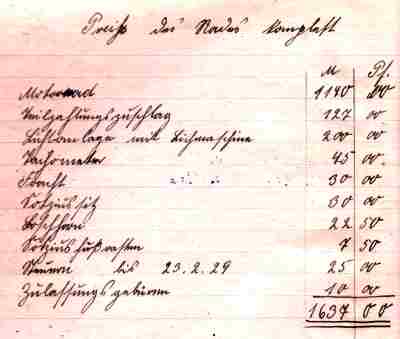 Preiß des Rades komplett
M Pf.
Motorrad 1140 00
Teilzahlungszuschlag 127 00
Lichtanlage mit Lichmaschine 200 00
Tachometer 45 00
Fracht 30 00
Soziussitz 30 00
Boschhorn 22 50
Soziusfußrasten 7 50
Steuern bis 23.2.29 25 00
Zulassungsgebüren 10 00
1637 00